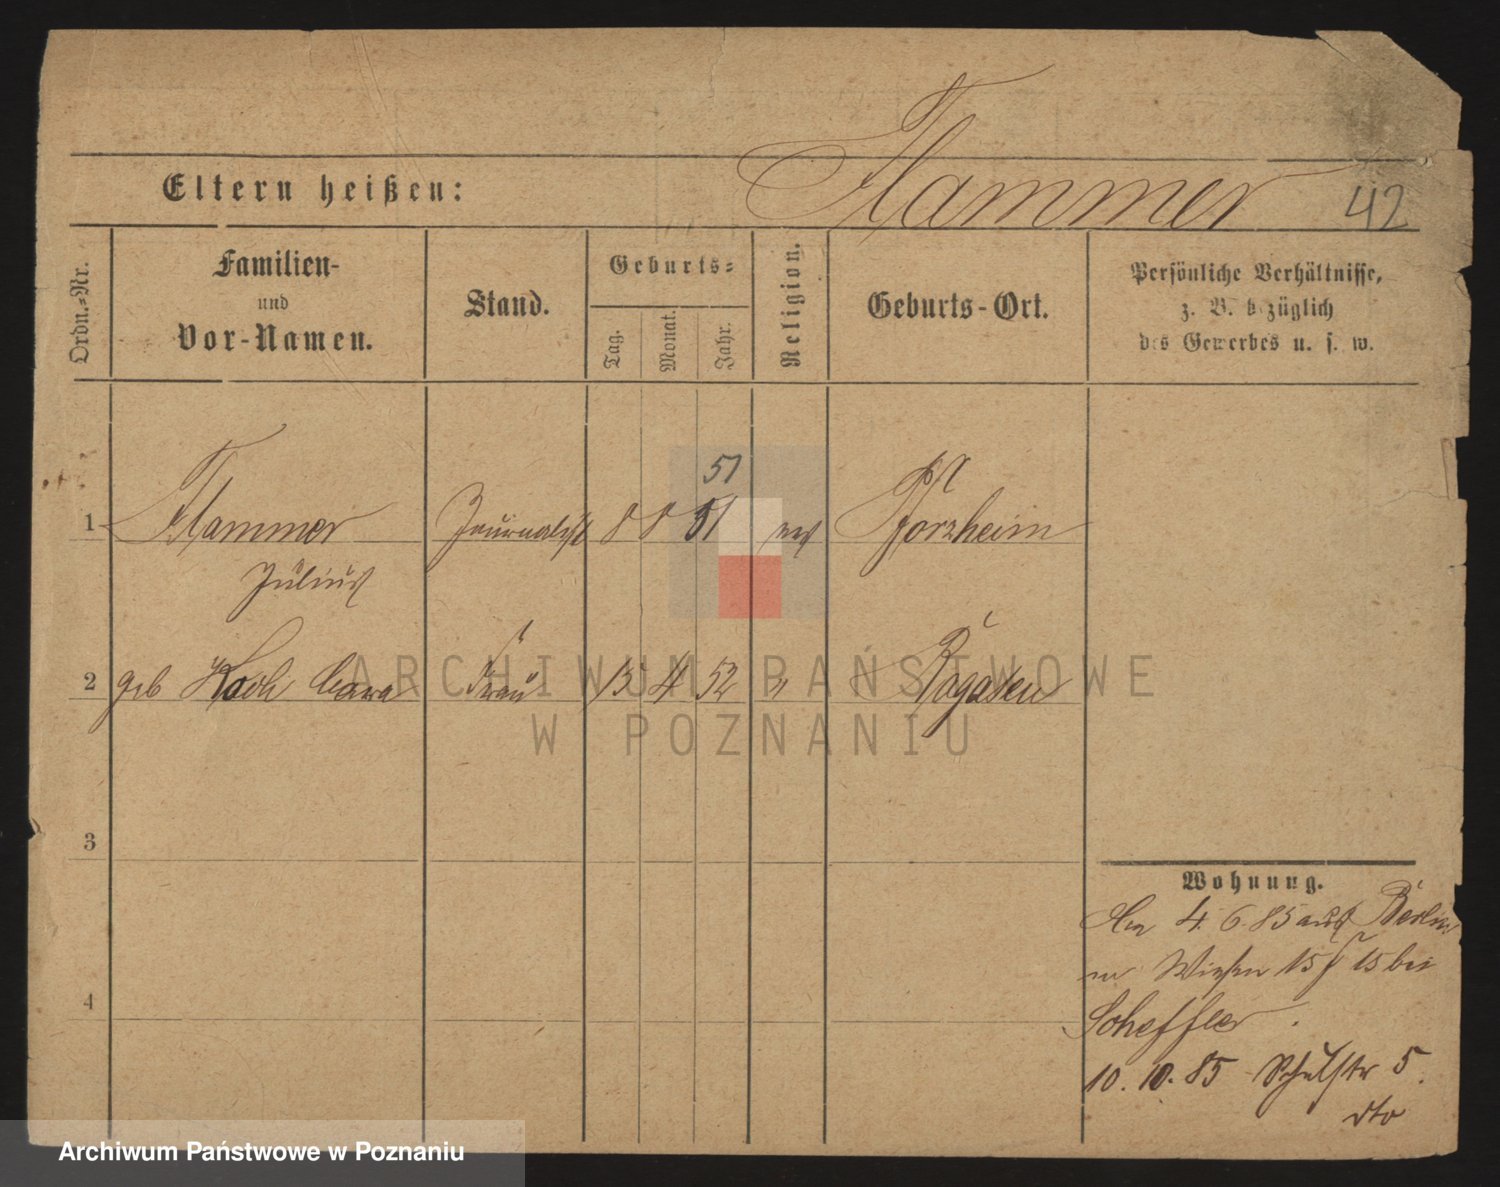 Flammer
42
Eltern heißen:
Ordn.-Nr.
Familien-
und
Vor-Namen.
Stand.
Geburts-
Tag.
Monat.
Jahr.
Religion.
Geburts-Ort.
Persönliche Verhältnisse,
z. B. bezüglich
des Gewerbes u. s. w.
51
1 Flammer Journalist 8 8 51 Pforzheim
Julius
2 geb Koch Clara Frau 13 4 52 " Rogasen
3
4
Wohnung.
An 4. 6. 85 aus Berlin
Wiesen 15 bei
Scheffler.
10. 10. 85 Schulstr 5.
dto
ARCHIWUM PAŃSTWOWE
W POZNANIU
Archiwum Państwowe w Poznaniu